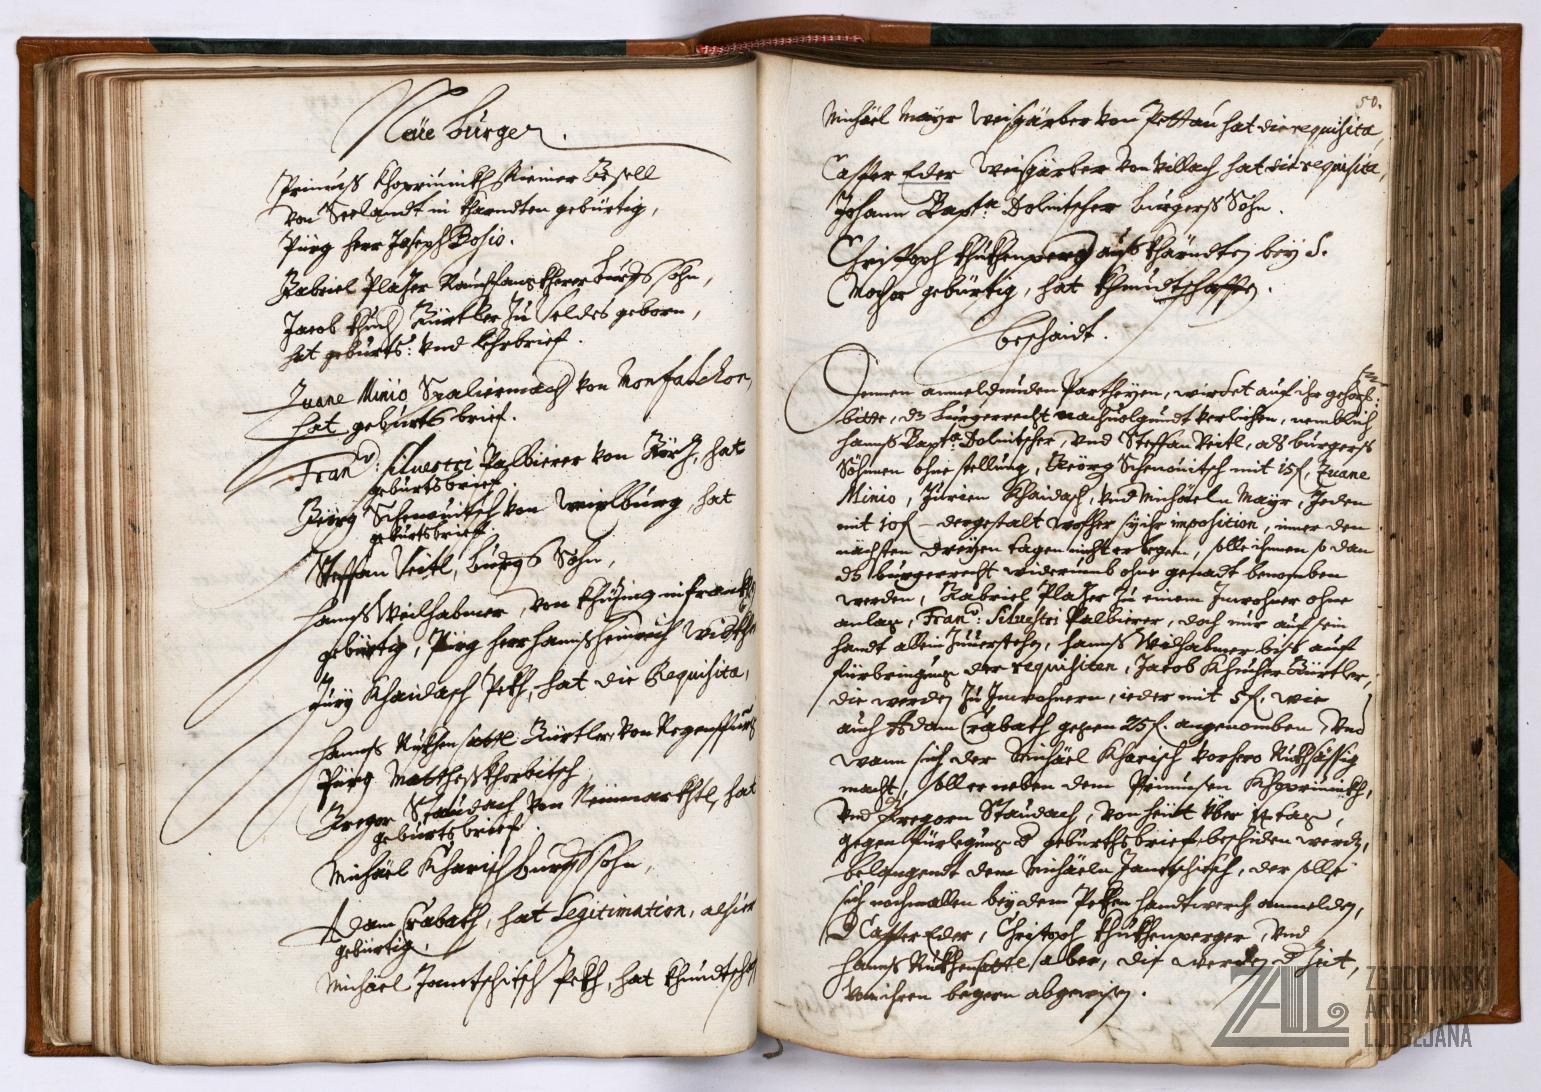 Neüe Bürger.
Primuß Khopriunikh Riemer Gesell
von Seelandt in Kharndten gebürtig,
Pürg herr Joseph Bosio.
Gabriel Plazer Rauchfangkherer burgers sohn,
Jacob Gürtler zu Veldes geborn,
hat geburts: vnd lehrbrief.
Zuane Minio Spaliermach von Monfalckon,
hat geburts brief.
Franc: Siluestri Palbierer von Görz, hat
geburtsbrief.
Geörg Schenouitsch von Weixlburg, hat
geburtsbrief.
Steffan Veitl, burgers Sohn,
Hannß Weilhabmer, von in Frankhen
gebürtig, Pürg herr Hannß Heinrich
Jury Khaidasch Pekh, hat die Requisita,
Hannß Rukhensattl Gürtler, von Regenspurg
Pürg Matthes Khorbitsch
Gregor Staudach von Neümarkhtl, hat
geburtsbrief
Michäel Kharisch burgers sohn,
Adam Crabath, hat Legitimation, alhier
gebürtig,
Michael Jamtschitsch Pekh, hat khundtschafft
50.
Michäel Mayr Weißgärber von Pettau hat die requisita,
Casper Eder Weißgärber von Villach hat die requisita,
Johann Bapta Dolnitscher burgerß Sohn.
Christoph Khukhenperg auß Khärndten bey S.
Mochor gebürtig, hat khundtschafft.
beschaidt.
Denen anmeldunden Partheyen, wirdet auf ihr gehors:
bitte, dz burgerrecht nachuolgundt verlichen, nemblich
Hannß Bapta Dolnitscher, vnd Steffan Veitl, als burgerß
Söhnen ohne stellung, Geörg Schenouitsch mit 15 f, Zuane
Minio, Jurien Khaidasch, vnd Michäeln Mayr, Jeden
mit 10 f - dergestalt welcher sein imposition, inner den
nächsten dreyen tagen nicht erlegen, solle ihnen so dan
dz burgerrecht widerumb ohne genadt benomben
werden, Gabriel Plazer zu einem Inwohner ohne
anlag, Franc: Siluestri Palbierer, doch nur auf sein
handt allein zuuerstehen, Hannß Weilhabmer biß auf
fürbringung der requisiten, Jacob Gürtler,
die werden zu Inwohnern, ieder mit 5 f, wie
auch Adam Crabath gegen 25 f. angenomben, vnd
wann sich der Michäel Kharisch vorhero Rukhsässig
macht, soll er neben dem Primusen Khopriunikh,
vnd Gregorn Staudach, von heüt über 14 tag,
gegen fürlegung d geburthsbrief beschiden werden,
belangendt dem Michäeln Jamtschitsch, der solle
sich nochmallen bey dem Pekhen handtwerch anmelden,
d Casper Eder, Christoph Khukhenperger, vnd
Hannß Rukhensattl aber, die werden d Zeit,
von ihren begern abgewisen.
ZAL
ZGODOVINSKI
ARHIV
LJUBLJANA